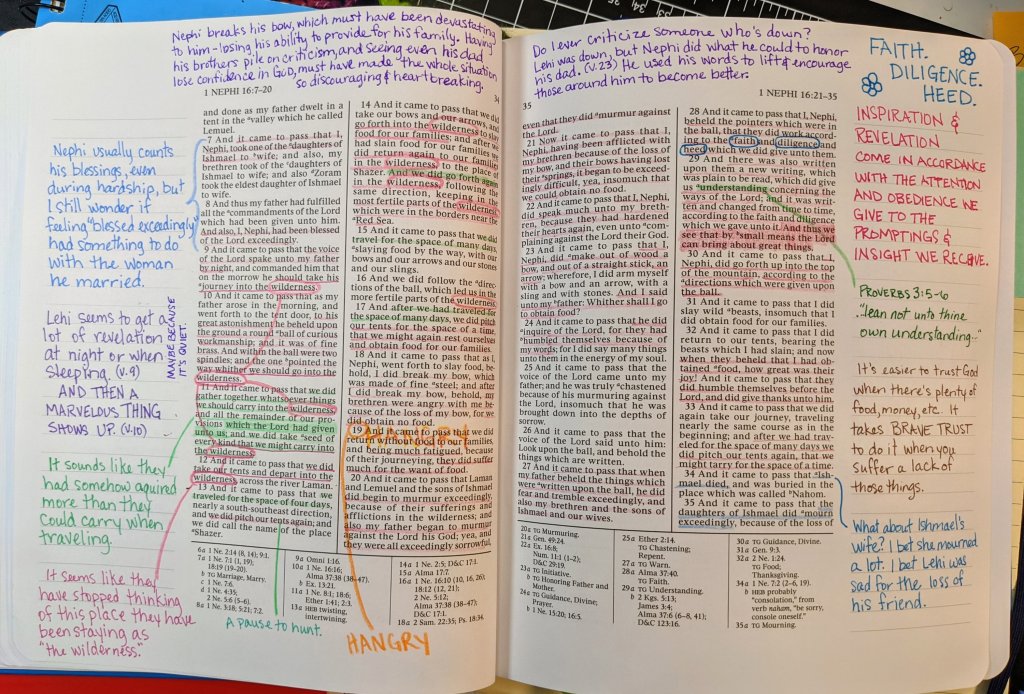 Nephi breaks his bow, which must have been devastating
to him - losing his ability to provide for his family. Having
his brothers pile on criticism, and seeing even his dad
lose confidence in GOD, must have made the whole situation
so discouraging & heart breaking.
1 NEPHI 16:7–20
34
Nephi usually counts
his blessings, even
during hardship, but
I still wonder if
feeling "blessed exceedingly"
had something to do
with the woman
he married.
Lehi seems to get a
lot of revelation
at night or when
sleeping. (v.9)
AND THEN A
MARVELOUS THING
SHOWS UP. (v.10)
MAYBE BECAUSE
IT'S QUIET.
It sounds like they
had somehow aquired
more than they
could carry when
traveling.
It seems like they
have stopped thinking
of this place they have
been staying as
"the wilderness."
and done as my father dwelt in a
tent in the valley which he called
Lemuel.
7 And it came to pass that I,
Nephi, took one of the daughters of
Ishmael to wife; and also, my
brethren took of the daughters of
Ishmael to wife; and also Zoram
took the eldest daughter of Ishmael
to wife.
8 And thus my father had fulfilled
all the commandments of the Lord
which had been given unto him.
And also, I, Nephi, had been blessed
of the Lord exceedingly.
9 And it came to pass that the voice
of the Lord spake unto my father
by night, and commanded him that
on the morrow he should take his
journey into the wilderness.
10 And it came to pass that as my
father arose in the morning, and
went forth to the tent door, to his
great astonishment he beheld upon
the ground a round ball of curious
workmanship; and it was of fine
brass. And within the ball were two
spindles; and the one pointed the
way whither we should go into the
wilderness.
11 And it came to pass that we did
gather together whatsoever things
we should carry into the wilderness,
and all the remainder of our pro-
visions which the Lord had given
unto us; and we did take seed of
every kind that we might carry into
the wilderness.
12 And it came to pass that we did
take our tents and depart into the
wilderness, across the river Laman.
13 And it came to pass that we
traveled for the space of four days,
nearly a south-southeast direction,
and we did pitch our tents again; and
we did call the name of the place
Shazer.
14 And it came to pass that we did
take our bows and our arrows, and
go forth into the wilderness to slay
food for our families; and after we
had slain food for our families we
did return again to our families
in the wilderness, to the place of
Shazer. And we did go forth again
in the wilderness, following the
same direction, keeping in the
most fertile parts of the wilderness,
which were in the borders near the
Red Sea.
15 And it came to pass that we did
travel for the space of many days,
slaying food by the way, with our
bows and our arrows and our stones
and our slings.
16 And we did follow the direc-
tions of the ball, which led us in the
more fertile parts of the wilderness.
17 And after we had traveled for
the space of many days, we did pitch
our tents for the space of a time,
that we might again rest ourselves
and obtain food for our families.
18 And it came to pass that as I,
Nephi, went forth to slay food, be-
hold, I did break my bow, which
was made of fine steel; and after
I did break my bow, behold, my
brethren were angry with me be-
cause of the loss of my bow, for we
did obtain no food.
19 And it came to pass that we did
return without food to our families,
and being much fatigued, because
of their journeying, they did suffer
much for the want of food.
20 And it came to pass that Laman
and Lemuel and the sons of Ishmael
did begin to murmur exceedingly,
because of their sufferings and
afflictions in the wilderness; and
also my father began to murmur
against the Lord his God; yea, and
they were all exceedingly sorrowful,
HANGRY
A pause to hunt.
6a 1 Ne. 2:14 (8, 14); 9:1.
7a 1 Ne. 7:1 (1, 19);
18:19 (19–20).
b TG Marriage, Marry.
c 1 Ne. 7:6.
d 1 Ne. 4:35;
2 Ne. 5:6 (5–6).
8a 1 Ne. 3:18; 5:21; 7:2.
9a Omni 1:16.
10a 1 Ne. 16:16;
Alma 37:38 (38–47).
b Ex. 13:21.
11a 1 Ne. 8:1; 18:6;
Ether 1:41; 2:3.
13a HEB twisting,
intertwining.
14a 1 Ne. 2:5; D&C 17:1.
15a Alma 17:7.
16a 1 Ne. 16:10 (10, 16, 26);
18:12 (12, 21);
2 Ne. 5:12;
Alma 37:38 (38–47);
D&C 17:1.
18a 2 Sam. 22:35; Ps. 18:34.
HANGRY
Do I ever criticize someone who's down?
Lehi was down, but Nephi did what he could to honor
his dad. (v.23) He used his words to lift & encourage
those around him to become better.
35
1 NEPHI 16:21–35
even that they did murmur against
the Lord.
21 Now it came to pass that I,
Nephi, having been afflicted with
my brethren because of the loss of
my bow, and their bows having lost
their springs, it began to be exceed-
ingly difficult, yea, insomuch that
we could obtain no food.
22 And it came to pass that I, Nephi,
did speak much unto my breth-
ren, because they had hardened
their hearts again, even unto com-
plaining against the Lord their God.
23 And it came to pass that I,
Nephi, did make out of wood a
bow, and out of a straight stick, an
arrow; wherefore, I did arm myself
with a bow and an arrow, with a
sling and with stones. And I said
unto my father: Whither shall I go
to obtain food?
24 And it came to pass that he did
inquire of the Lord, for they had
humbled themselves because of
my words; for I did say many things
unto them in the energy of my soul.
25 And it came to pass that the
voice of the Lord came unto my
father; and he was truly chastened
because of his murmuring against
the Lord, insomuch that he was
brought down into the depths of
sorrow.
26 And it came to pass that the
voice of the Lord said unto him:
Look upon the ball, and behold the
things which are written.
27 And it came to pass that when
my father beheld the things which
were written upon the ball, he did
fear and tremble exceedingly, and
also my brethren and the sons of
Ishmael and our wives.
28 And it came to pass that I, Nephi,
beheld the pointers which were in
the ball, that they did work accord-
ing to the faith and diligence and
heed which we did give unto them.
29 And there was also written
upon them a new writing, which
was plain to be read, which did give
us understanding concerning the
ways of the Lord; and it was writ-
ten and changed from time to time,
according to the faith and diligence
which we gave unto it. And thus we
see that by small means the Lord
can bring about great things.
30 And it came to pass that I,
Nephi, did go forth up into the top
of the mountain, according to the
directions which were given upon
the ball.
31 And it came to pass that I did
slay wild beasts, insomuch that I
did obtain food for our families.
32 And it came to pass that I did
return to our tents, bearing the
beasts which I had slain; and now
when they beheld that I had ob-
tained food, how great was their
joy! And it came to pass that they
did humble themselves before the
Lord, and did give thanks unto him.
33 And it came to pass that we did
again take our journey, traveling
nearly the same course as in the
beginning; and after we had trav-
eled for the space of many days we
did pitch our tents again, that we
might tarry for the space of a time.
34 And it came to pass that Ish-
mael died, and was buried in the
place which was called Nahom.
35 And it came to pass that the
daughters of Ishmael did mourn
exceedingly, because of the loss of
20a TG Murmuring.
21a Gen. 49:24.
22a Ex. 16:8;
Num. 11:1 (1–2);
D&C 29:19.
23a TG Initiative.
b TG Honoring Father and
Mother.
24a TG Guidance, Divine;
Prayer.
b 1 Ne. 15:20; 16:5.
25a Ether 2:14.
TG Chastening;
Repent.
27a TG Warn.
28a Alma 37:40.
TG Faith.
29a TG Understanding.
b 2 Kgs. 5:13;
James 3:4;
Alma 37:6 (6–8, 41);
D&C 123:16.
30a TG Guidance, Divine.
31a Gen. 9:3.
32a 2 Ne. 1:24.
TG Food;
Thanksgiving.
34a 1 Ne. 7:2 (2–6, 19).
b HEB probably
"consolation," from
verb naham, "be sorry,
console oneself."
35a TG Mourning.
FAITH.
DILIGENCE.
HEED.
INSPIRATION &
REVELATION
COME IN ACCORDANCE
WITH THE ATTENTION
AND OBEDIENCE WE
GIVE TO THE
PROMPTINGS &
INSIGHT WE RECEIVE.
PROVERBS 3:5-6
"lean not unto thine
own understanding..."
It's easier to trust God
when there's plenty of
food, money, etc. It
takes BRAVE TRUST
to do it when you
suffer a lack of
those things.
What about Ishmael's
wife? I bet she mourned
a lot. I bet Lehi was
sad for the loss of
his friend.